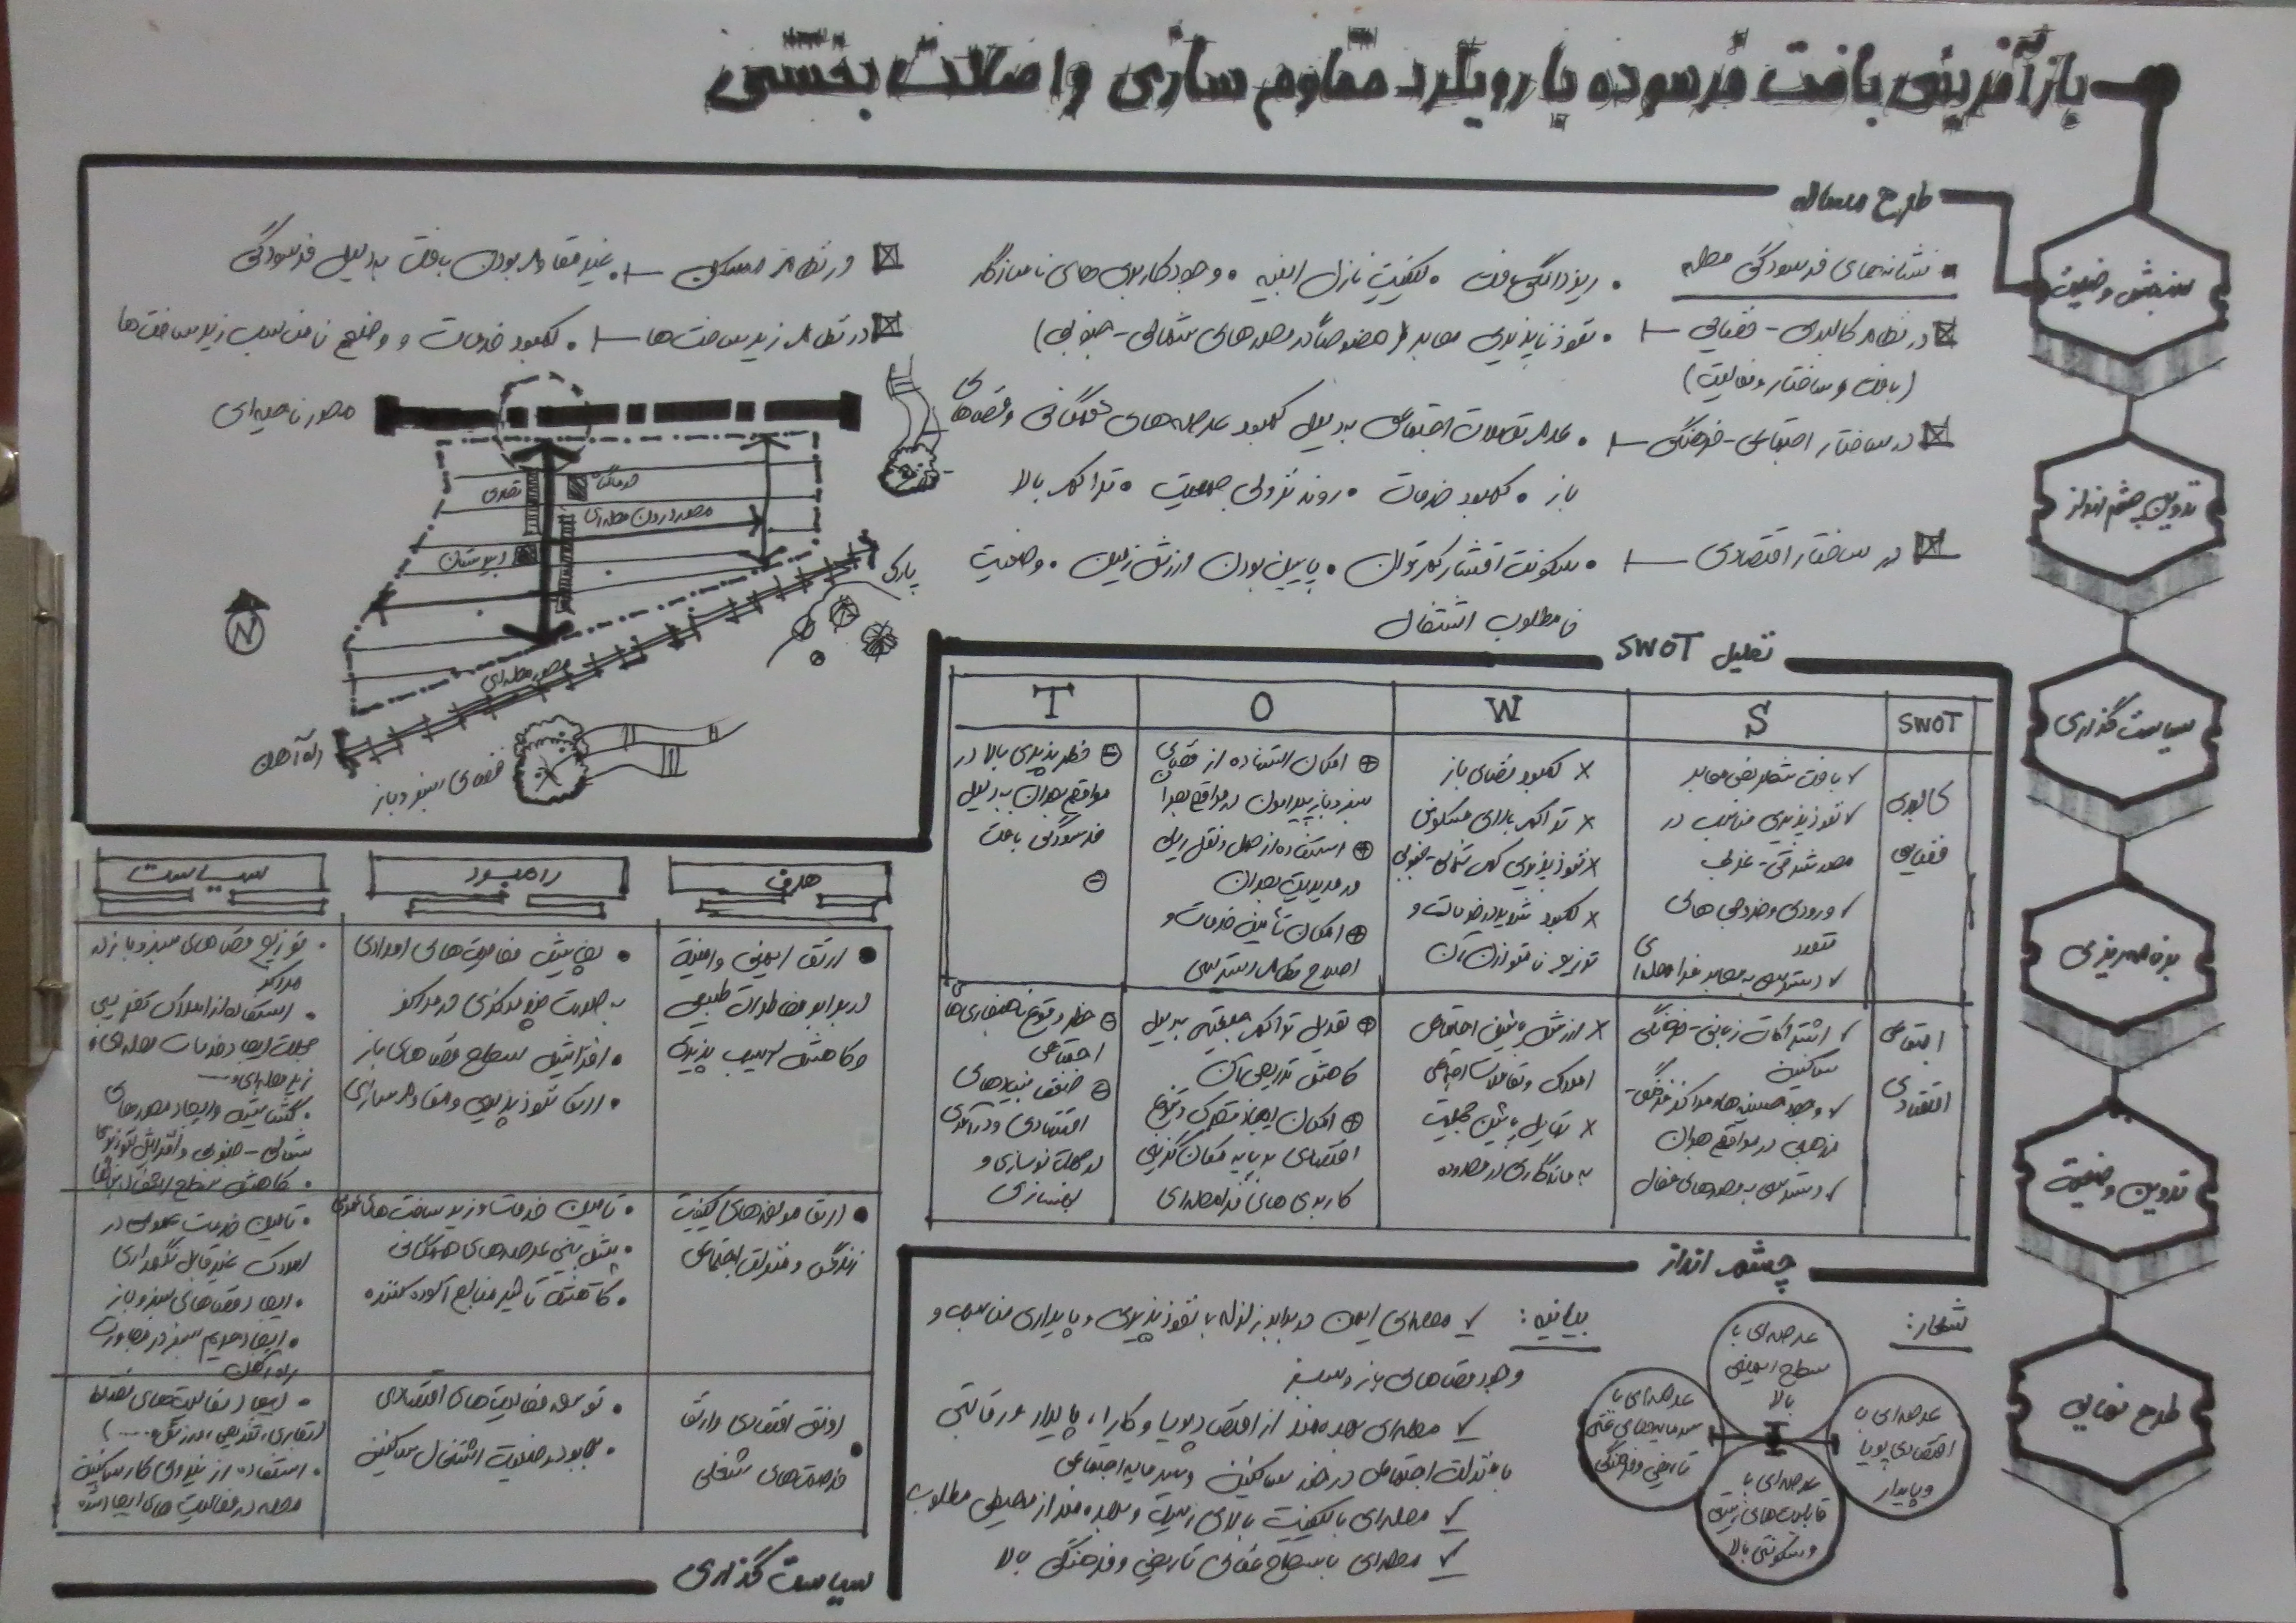 بازآفرینی بافت فرسوده با رویکرد مقاوم سازی و اصالت بخشی
سنجش وضعیت
تدوین چشم انداز
سیاست گذاری
برنامه ریزی
تدوین وضعیت
طرح نهایی
طرح مساله
نشانه‌های فرسودگی محله
• ریزدانگی بافت • کیفیت نازل ابنیه • وجود کاربری های ناسازگار
در نظام کالبدی - فضایی
• نفوذناپذیری معابر (خصوصاً در محورهای شمالی - جنوبی)
(بافت و ساختار و فعالیت)
در ساختار اجتماعی - فرهنگی
• عدم تعاملات اجتماعی به دلیل کمبود عرصه‌های همگانی و فضاهای
باز • کمبود خدمات • روند نزولی جمعیت • تراکم بالا
در ساختار اقتصادی
• سکونت اقشار کم توان • پایین بودن ارزش زمین • وضعیت
نامطلوب اشتغال
در نظام مسکن • غیر مقاوم بودن بافت به دلیل فرسودگی
در نظام زیرساخت‌ها • کمبود خدمات و وضع نامناسب زیرساخت‌ها
محور ناحیه‌ای
تجاری
درمانگاه
محور درون محله‌ای
دبیرستان
پارک
N
محور محله‌ای
راه آهن
فضای سبز و باز
تحلیل SWOT
SWOT
S
W
O
T
کالبدی
فضایی
✓ بافت شطرنجی معابر
✓ نفوذپذیری مناسب در
محور شرقی - غربی
✓ ورودی و خروجی های
متعدد
✓ دسترسی به معابر فرامحله‌ای
× کمبود فضای باز
× تراکم بالای مسکونی
× نفوذپذیری کم شمالی - جنوبی
× کمبود شدید خدمات و
توزیع نامتوازن آن
⊕ امکان استفاده از فضای
سبز و باز پیرامون در مواقع بحران
⊕ استفاده از حمل و نقل ریلی
در مدیریت بحران
⊕ امکان تأمین خدمات و
اصلاح نظام دسترسی
⊖ خطرپذیری بالا در
مواقع بحران به دلیل
فرسودگی بافت
⊖
اجتماعی
اقتصادی
✓ اشتراکات زبانی - فرهنگی
ساکنین
✓ وجود حسینیه‌ها و مراکز فرهنگی -
مذهبی در مواقع بحران
✓ دسترسی به محورهای فعال
× ارزش پایین اجتماعی
املاک و تعاملات اجتماعی
× تمایل پایین جمعیت
به ماندگاری در محدوده
⊕ تعدیل تراکم جمعیتی به دلیل
کاهش تدریجی آن
⊕ امکان ایجاد تحرک و تنوع
اقتصادی بر پایه مکان گزینی
کاربری های فرامحله‌ای
⊖ خطر وقوع ناهنجاری‌های
اجتماعی
⊖ ضعف بنیادهای
اقتصادی و درآمدی
در جهت نوسازی و
بهسازی
چشم انداز
شعار:
عرصه‌ای با
سطح ایمنی
بالا
عرصه‌ای با
سرمایه‌های غنی
تاریخی و فرهنگی
عرصه‌ای با
اقتصادی پویا
و پایدار
عرصه‌ای با
قابلیت‌های زیستی
و سکونتی بالا
بیانیه:
✓ محله‌ای ایمن در برابر زلزله با نفوذپذیری و پایداری مناسب و
وجود فضاهای باز و سبز
✓ محله‌ای بهره‌مند از اقتصاد پویا و کارا، پایدار و رقابتی
با منزلت اجتماعی در خور ساکنین و سرمایه اجتماعی
✓ محله‌ای با کیفیت بالای زیست و بهره‌مند از محیطی مطلوب
✓ محله‌ای با سطح غنای تاریخی و فرهنگی بالا
هدف
راهبرد
سیاست
• ارتقا ایمنی و امنیت
در برابر مخاطرات طبیعی
و کاهش آسیب پذیری
• افزایش فعالیت‌های امدادی
به صورت غیرمتمرکز
• افزایش سطح فضاهای باز
• ارتقا نفوذپذیری و مقاوم سازی
• توزیع فضاهای سبز و باز در
مراکز
• استفاده از املاک تخریبی
جهت ایجاد خدمات محله‌ای و
زیرمحله‌ای
• گشایش و ایجاد محورهای
شمالی - جنوبی و افزایش نفوذپذیری
• کاهش سطح اشغال بناها
• ارتقا مولفه‌های کیفیت
زندگی و منزلت اجتماعی
• تامین خدمات و زیرساخت‌های عمومی
• پیش بینی عرصه‌های همگانی
• کاهش تاثیر منابع آلوده کننده
• تامین خدمات عمومی در
املاک غیرقابل نگهداری
• ایجاد فضاهای سبز و باز
• ایجاد حریم سبز در مجاورت
راه آهن
رونق اقتصادی و ارتقا
فرصت‌های شغلی
• توسعه فعالیت‌های اقتصادی
• بهبود وضعیت اشتغال ساکنین
• ایجاد فعالیت‌های مختلط
(تجاری، تفریحی، ورزشی، ....)
• استفاده از نیروی کار ساکنین
محله در فعالیت های ایجاد شده
سیاست گذاری